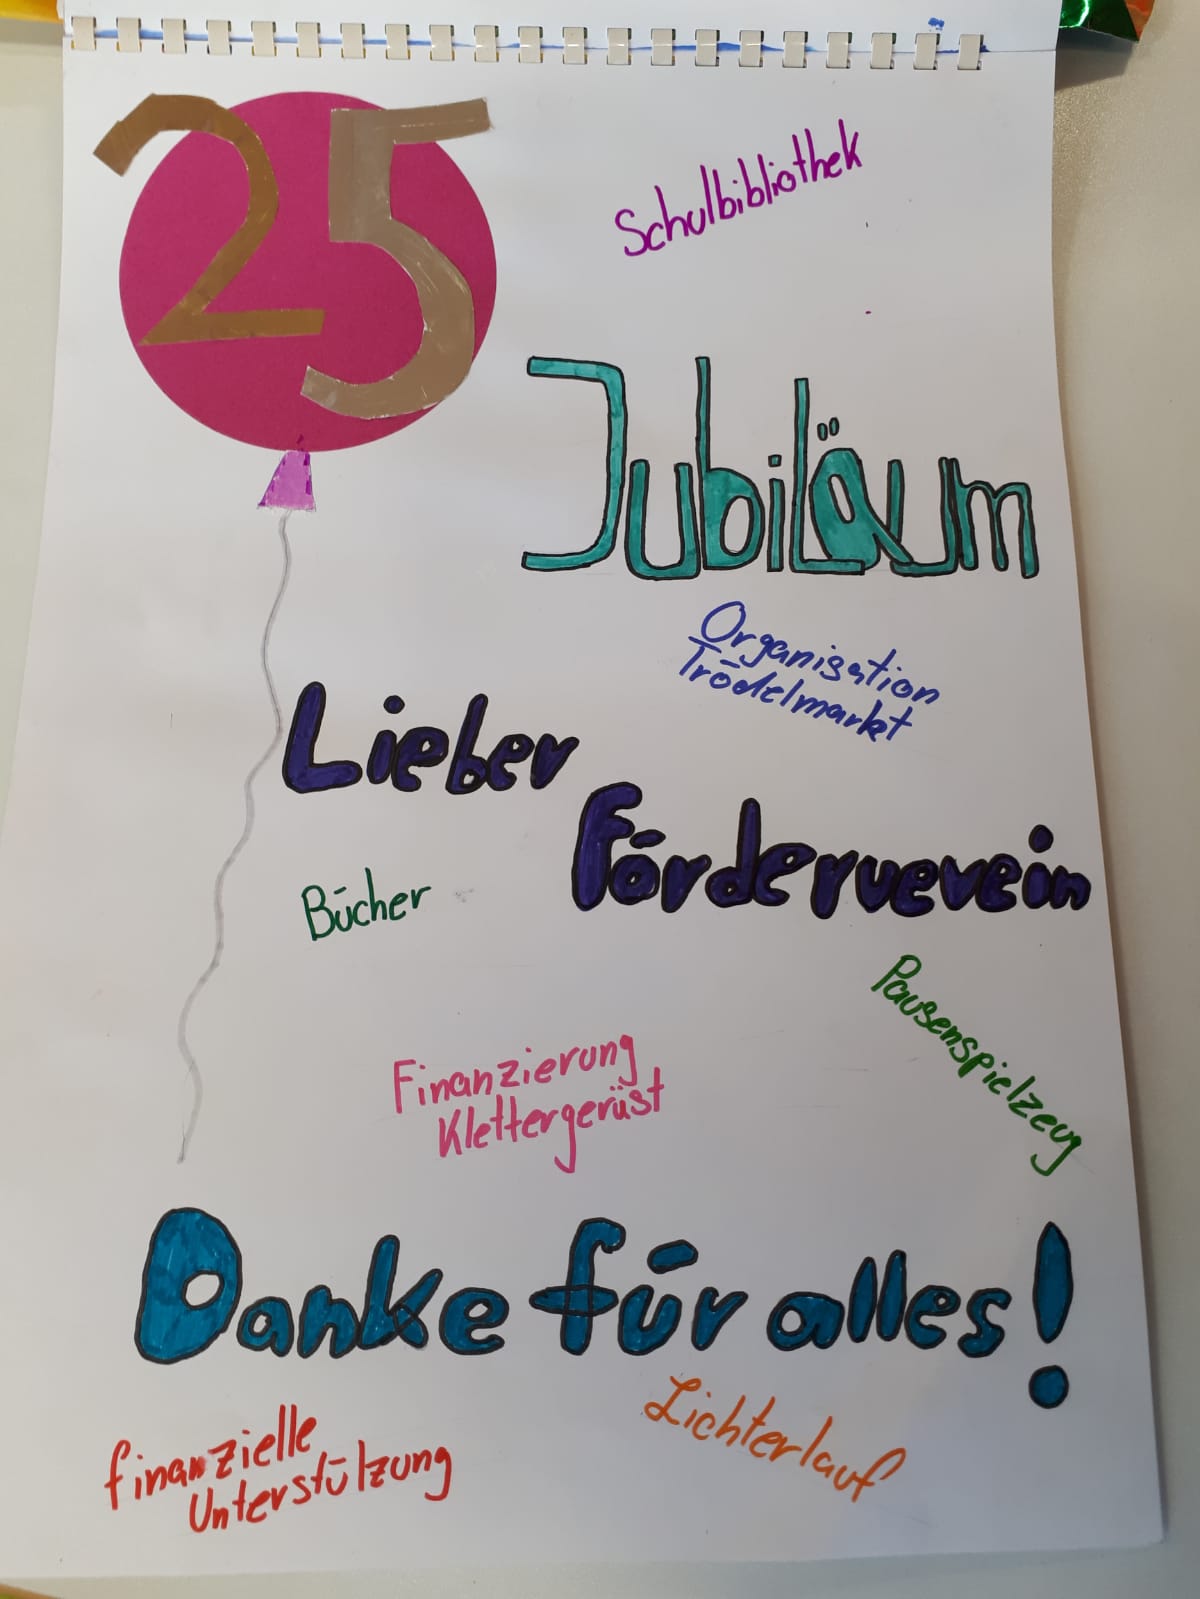 25
Schulbibliothek
Jubiläum
Organisation
Trödelmarkt
Lieber
Förderverein
Bücher
Pausenspielzeug
Finanzierung
Klettergerüst
Danke für alles!
Lichterlauf
finanzielle
Unterstützung